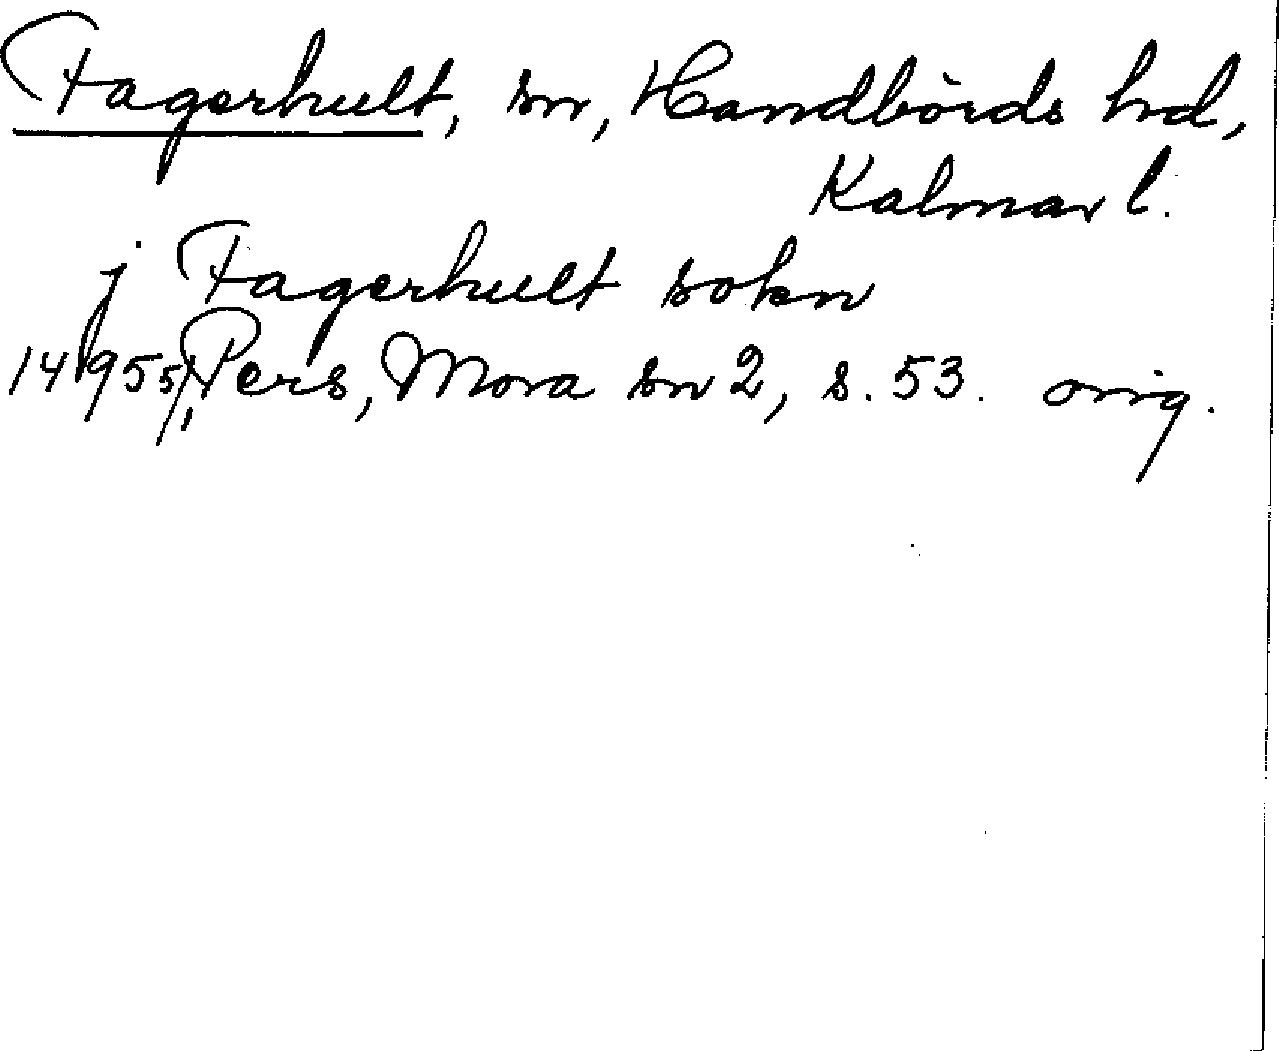 Fagerhult, sn, Handbörds hd,
Kalmar l.
j Fagerhult sokn
14955/, Pers, Mora sn 2, s. 53. orig.